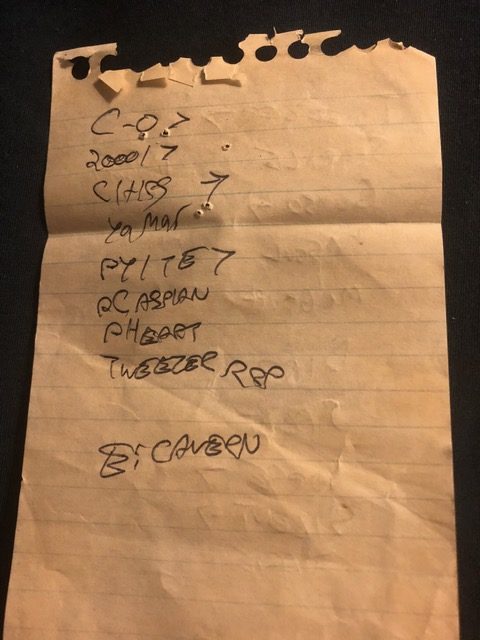 C-O >
20001 >
CITIES →
Ya Mar
PYITE >
PCASPIAN
PHEART
TWEEZER REP
E: CAVERN